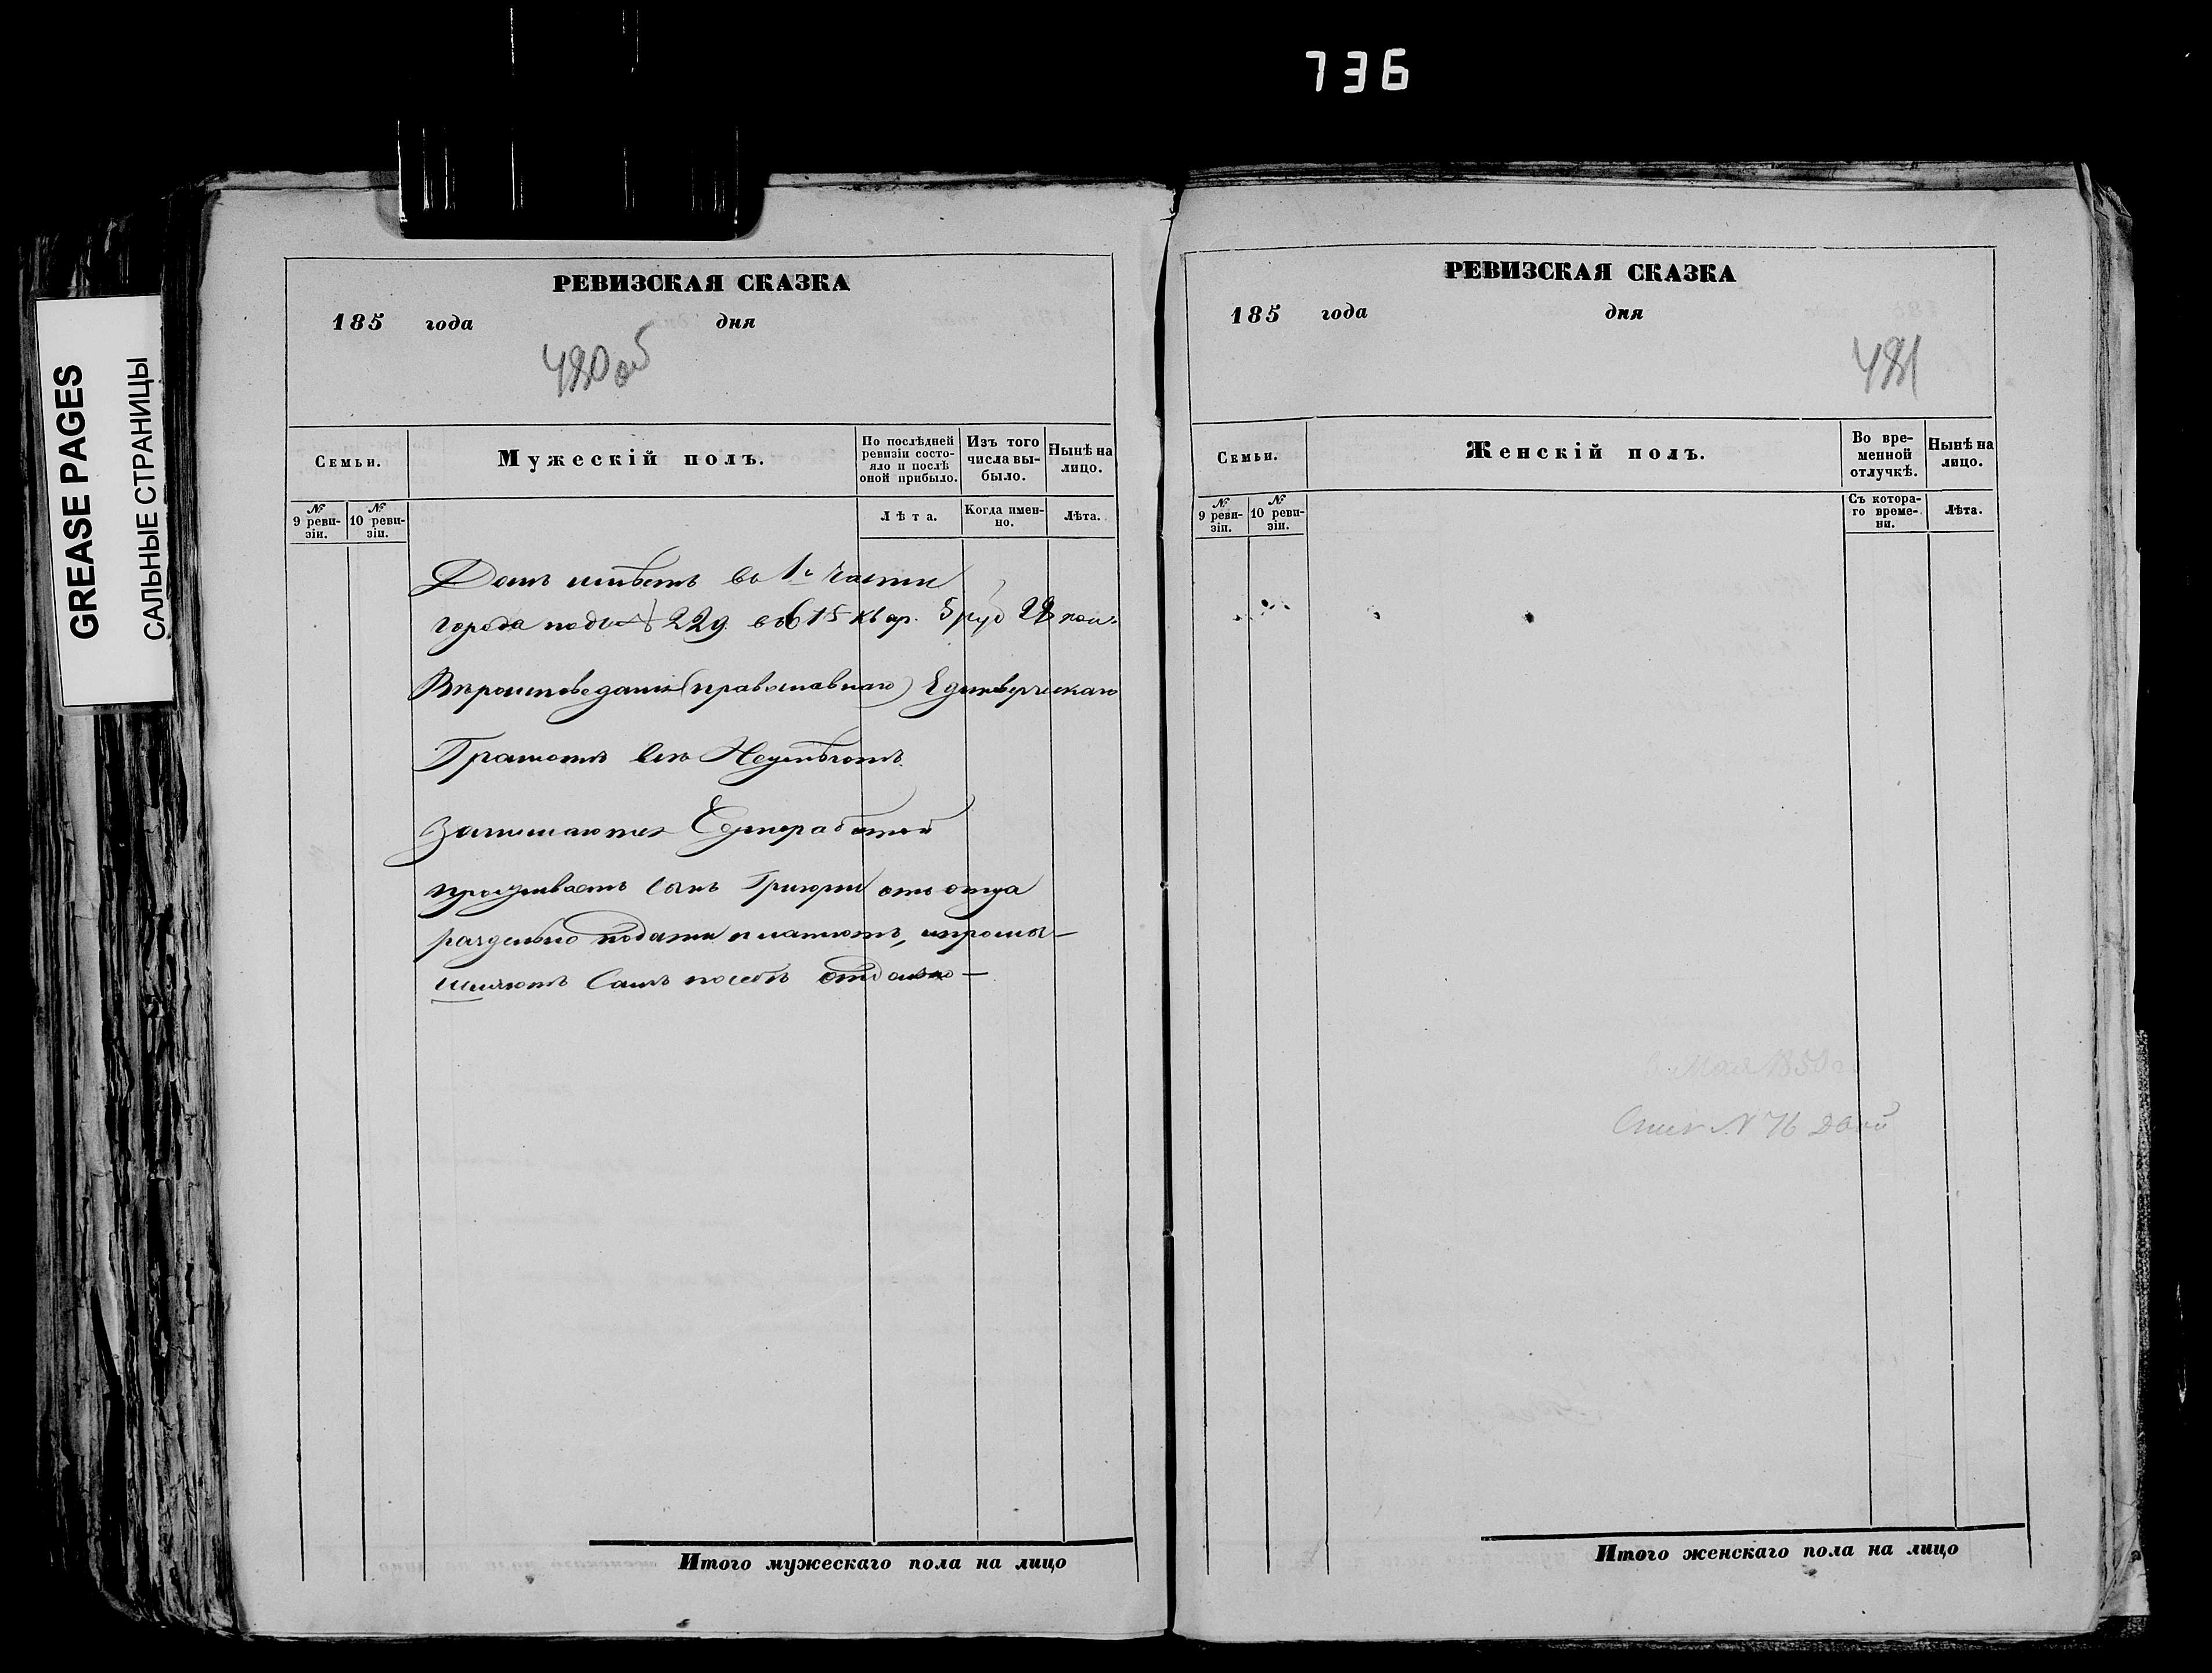 736
GREASE PAGES
САЛЬНЫЕ СТРАНИЦЫ
РЕВИЗСКАЯ СКАЗКА
185 года дня
480 об
Семьи.
Мужескій полъ.
По послѣдней ревизіи состояло и послѣ оной прибыло.
Изъ того числа выбыло.
Нынѣ на лицо.
№ 9 ревизіи.
№ 10 ревизіи.
Лѣта.
Когда именно.
Лѣта.
Домъ имѣетъ въ 1й части
города подъ № 229. въ 15 квар. 5 руб
Вѣроисповеданія (православнаго) Единоверческаго
Грамотѣ всѣ Неумѣютъ.
Занимаются
проживаетъ сынъ Григорий отъ отца
раздельно подати платютъ, и промы-
шляютъ самъ по себѣ отдельно —
Итого мужескаго пола на лицо
РЕВИЗСКАЯ СКАЗКА
185 года дня
481
Семьи.
Женскій полъ.
Во временной отлучкѣ.
Нынѣ на лицо.
№ 9 ревизіи.
№ 10 ревизіи.
Съ котораго времени.
Лѣта.
Мая 185
№ 76
Итого женскаго пола на лицо